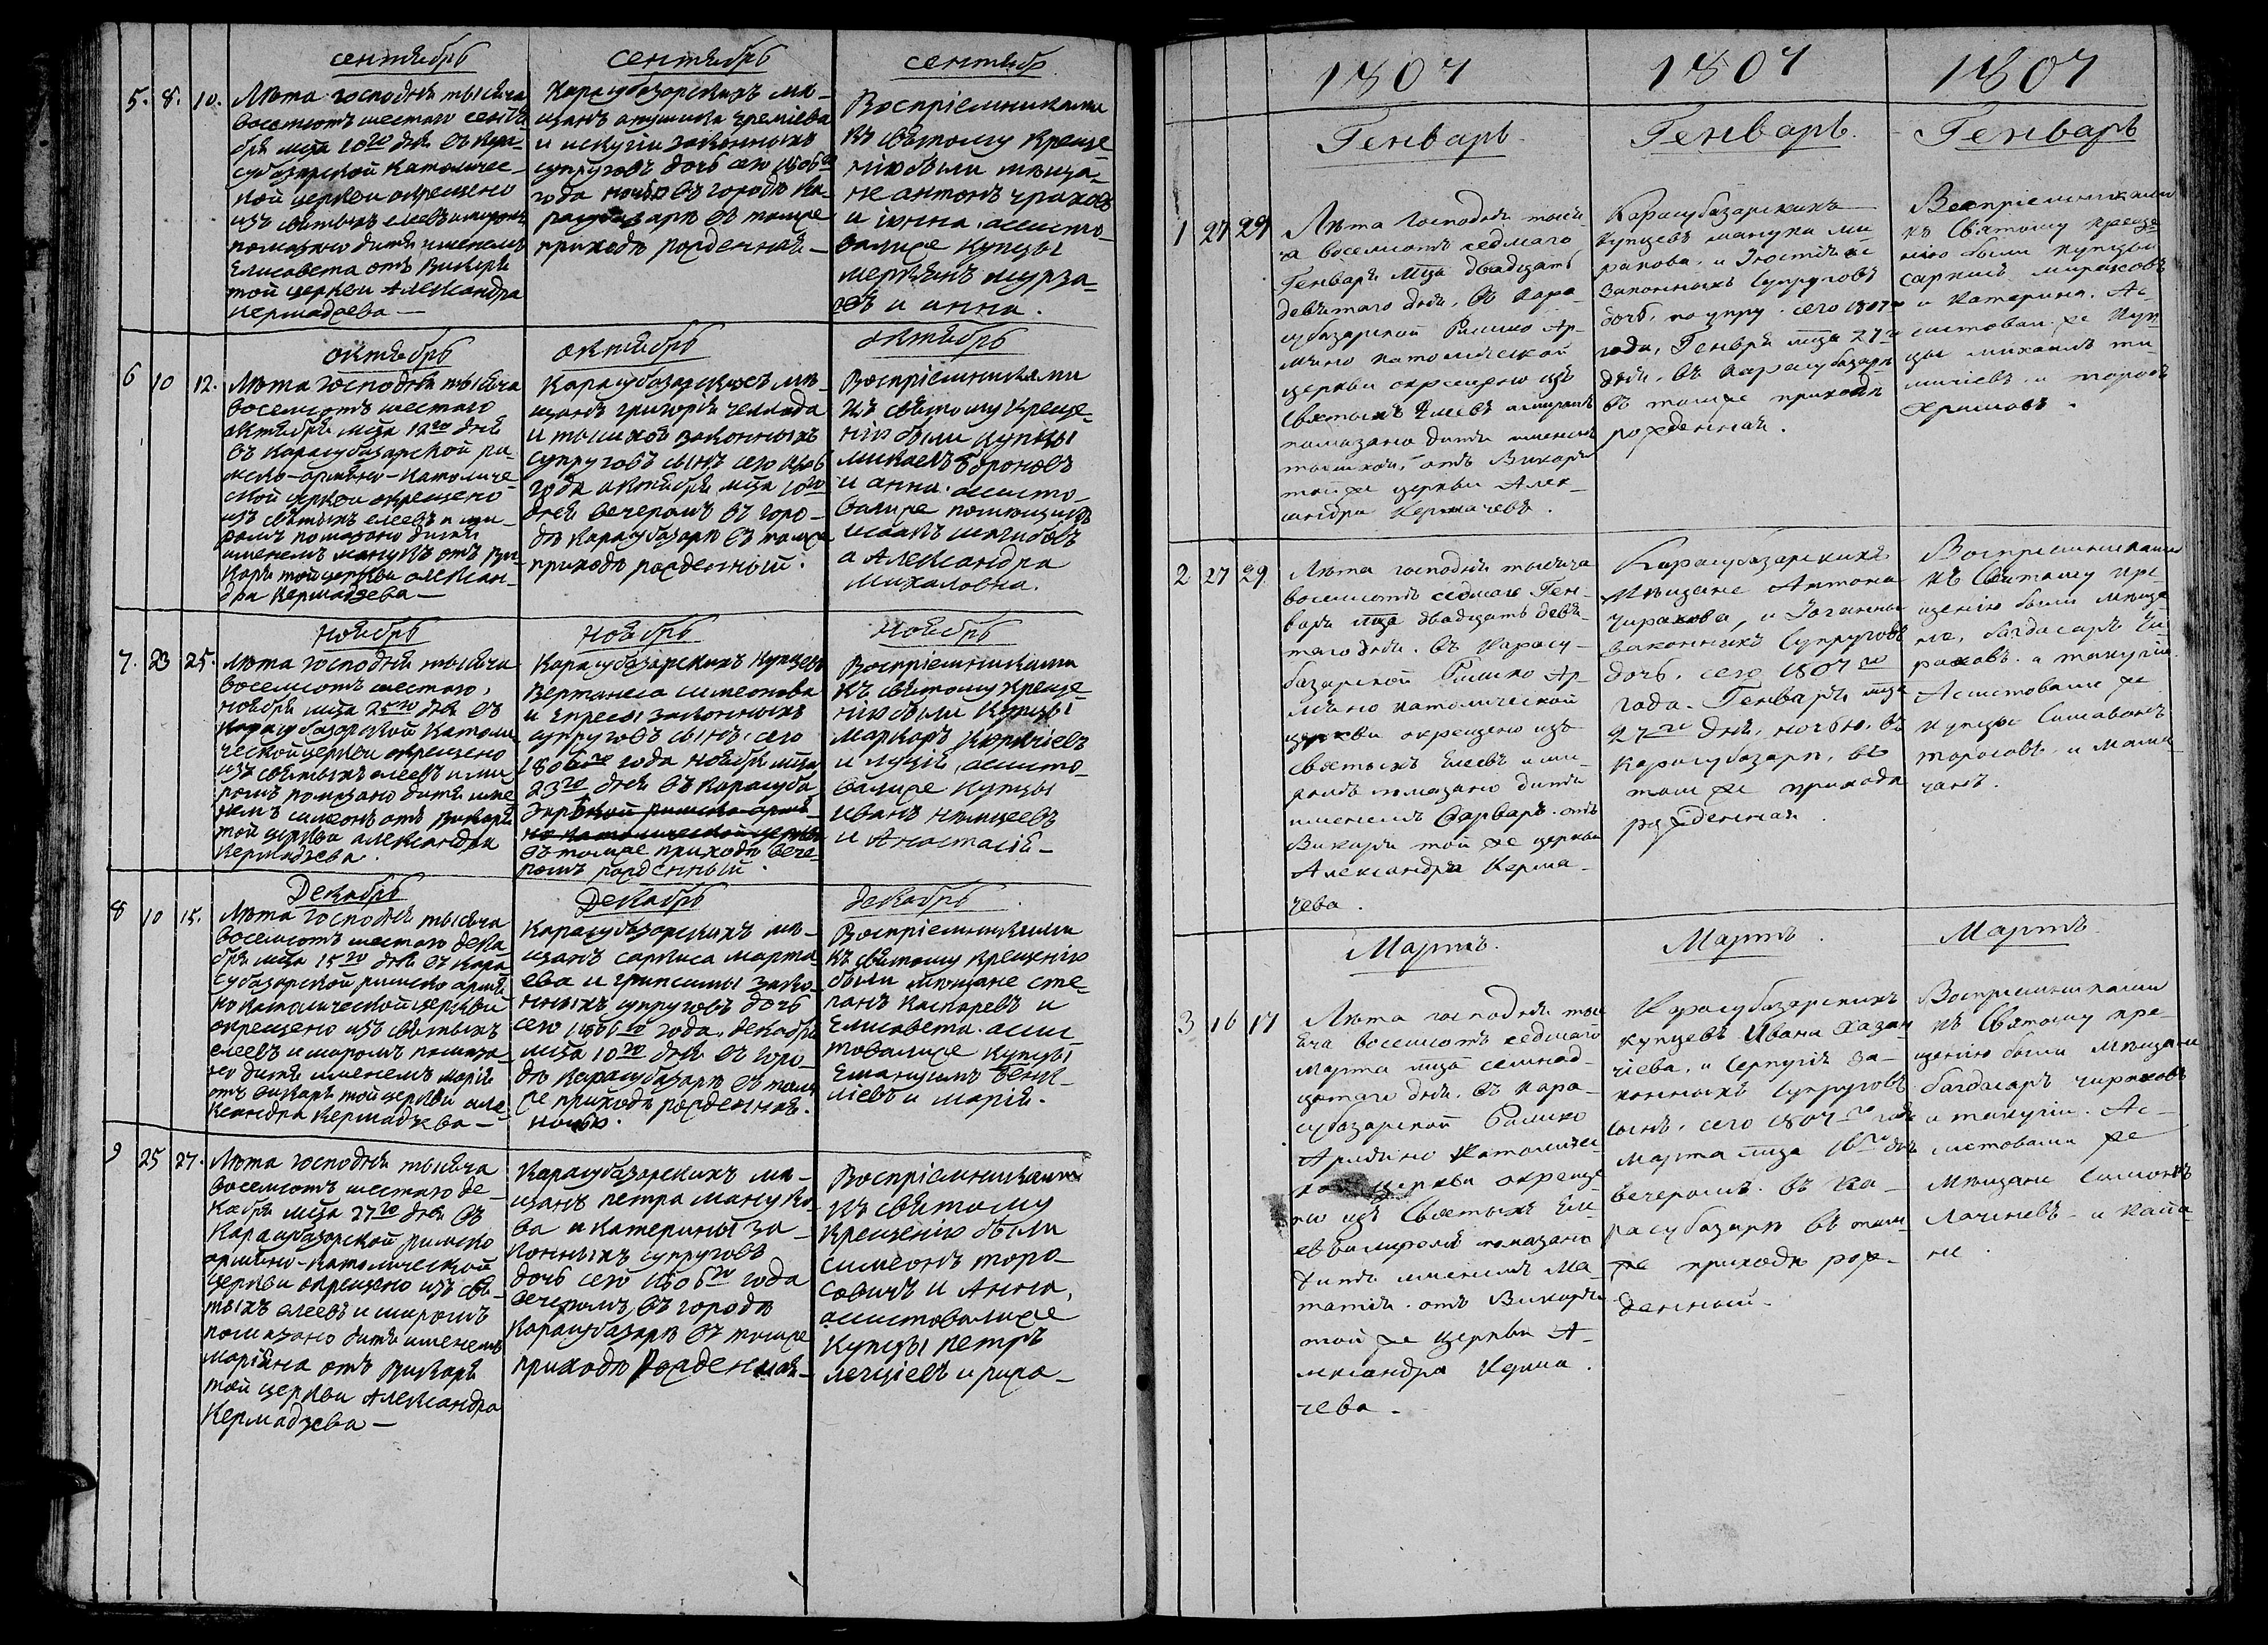 сентябрь
5. 8. 10.
Лѣта господня тысяча
восемсотъ шестаго сентя
бря мца 10го дня въ Кара
субазарской католичес-
кой церкви окрещено
изъ святыхъ елеевъ и миромъ
помазано дитя именемъ
Елисавета отъ Викарiя
той церкви Александра
Кермадзева —
сентябрь
Карасубазарскихъ мѣ-
щанъ Еремiева
и законныхъ
супруговъ дочь сего 1806го
года ночью въ городѣ Ка-
расубазарѣ въ томже
приходѣ рожденная —
сентябр
Воспрiемниками
къ святому креще-
нiю были мѣща-
не антонъ чираховъ
и iанна. ассисто-
валиже купцы
мурза-
евъ и анна.
октябрь
6 10 12.
Лѣта господня тысяча
восемсотъ шестаго
октября мца 12го дня
въ Карасубазарской ри-
мско-армяно-католиче-
ской церкви окрещено
изъ святыхъ елеевъ и ми-
ромъ помазано дитя
именемъ манукъ отъ Ви-
карiя той церкви алексан-
дра Кермадзева —
октябрь
Карасубазарскихъ мѣ-
щанъ григорiя
и законныхъ
супруговъ сынъ сего 1806
года октября мца 10го
дня вечеромъ въ горо-
дѣ Карасубазарѣ въ томже
приходѣ рожденный.
октябрь
Воспрiемниками
къ святому креще-
нiю были купцы
мисаелъ
и анна. ассисто-
валиже помѣщикъ
исаакъ
а Александра
михаловна.
ноябрь
7. 23 25.
Лѣта господня тысяча
восемсотъ шестаго,
ноября мца 25го дня въ
Карасубазарской католи
ческой церкви окрещено
изъ святыхъ елеевъ и ми
ромъ помазано дитя име
немъ симеонъ отъ Викарiя
той церкви александра
Кермадзева.
ноябрь
Карасубазарскихъ купцевъ
Вертанеса симеонова
и Епресы законныхъ
супруговъ сынъ, сего
1806го года ноября мца
23го дня въ Карасуба
зарской римско-армя-
но католической церкви
въ томже приходѣ вече-
ромъ рожденный.
ноябрь
Воспрiемниками
къ святому креще
нiю были купцы
маркаръ
и луцiя, ассисто-
валиже купцы
иванъ
и Анастасiя —
Декабрь
8 10 15.
Лѣта господня тысяча
восемсотъ шестаго дека
бря мца 15го дня въ Кара
субазарской римско армя
но католической церкви
окрещено изъ святыхъ
елеевъ и миромъ помаза-
но дитя именемъ марiя
отъ викарiя той церкви але
ксандра Кермадзева —
Декабрь
Карасубазарскихъ мѣ-
щанъ саркиса марта-
ева и грипсимы зако-
нныхъ супруговъ дочь
сего 1806го года, декабря
мца 10го дня въ горо-
дѣ Карасубазарѣ въ том
же приходѣ рожденная.
ночью.
декабрь
Воспрiемниками
къ святому крещенiю
были мѣщане сте-
панъ каспаревъ и
Елисавета. ассис
товалиже купцы
Емануилъ
и марiя.
9 25 27.
Лѣта господня тысяча
восемсотъ шестаго де-
кабря мца 27го дня въ
Карасубазарской римско
армяно-католической
церкви окрещено изъ свя-
тыхъ елеевъ и миромъ
помазано дитя именемъ
марiана отъ Викарiя
той церкви Александра
Кермадзева —
Карасубазарскихъ мѣ-
щанъ петра Мануко-
ва и катерины за-
конныхъ супруговъ
дочь сего 1806го года
вечеромъ въ городѣ
Карасубазарѣ въ томже
приходѣ рожденная —
Воспрiемниками
къ святому
крещенiю были
симеонъ торо-
совичъ и Анна,
ассистовалиже
купцы петръ
и
1807 1807 1807
Генварь. Генварь. Генварь
1 27 29
Лѣта Господня тыся
ча восемсотъ седмаго
Генваря мца двадцать
девятаго дня, въ Кара-
субазарской Римско Ар-
мяно католической
церкви окрещено изъ
святыхъ Елеевъ и миромъ
помазано дитя именемъ
отъ Викарiя
той же церкви Алек-
сандра Кермачева.
Карасубазарскихъ
купцевъ манука ми-
ракова, и
законныхъ супруговъ
дочь, сего 1807го
года, Генваря мца 27го
дня, въ Карасубазарѣ
въ томже приходѣ
рожденная.
Воспрiемниками
къ Святому креще
нiю были купцы
саркисъ мираковъ
и катерина. Ас-
систовали же куп-
цы михаилъ
и торосъ
.
2 27 29
Лѣта господня тысяча
восемсотъ седмаго Ген-
варя мца двадцать девя-
таго дня. въ Карасу-
базарской Римско Ар-
мяно католической
церкви окрещено изъ
святыхъ Елеевъ и ми-
ромъ помазано дитя
именемъ Варваръ. отъ
Викарiя той же церкви
Александра Керма-
чева.
Карасубазарскихъ
мѣщане Антона
Чирахова, и Iоганны
законныхъ супруговъ
дочь, сего 1807го
года. Генваря мца
27го дня, ночью, въ
Карасубазарѣ, въ
том же приходѣ
рожденная.
Воспрiемниками
къ Святому кре-
щенiю были мѣща
не, багдасаръ Чи
раховъ. а такугiя.
Асистовали же
купцы
торосовъ. и мами
чанъ.
Мартъ. Мартъ. Мартъ.
3 16 17
Лѣта господня тыс
яча восемсотъ седмаго
марта мца семнад-
цатаго дня, въ кара-
субазарской Римско
Армяно Католичес
кой церкви окреще
но изъ Святыхъ Еле
евъ и миромъ помазано
дитя именемъ Ма-
татiя. отъ Викарiя
той же церкви А-
лександра Керма.
чева.
Карасубазарскихъ
купцевъ Ивана Хазан
чiева, и Серпугiя за-
конныхъ супруговъ
сынъ, сего 1807го года
марта мца 16го дня
вечеромъ. въ Ка-
расубазарѣ въ том
же приходѣ рож-
денный.
Воспрiемниками
къ Святому кре-
щенiю были мѣщани
багдасаръ чираховъ
и такугiи. Ас-
систовали же
мѣщане Симонъ
и кали-
не.